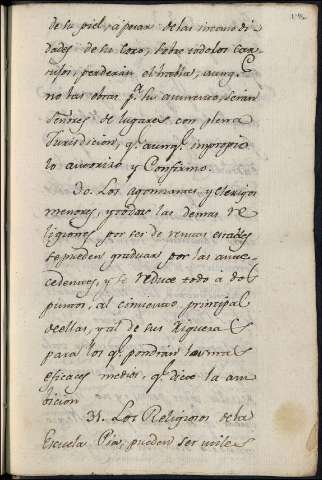 de su piel, apesar de las incomodi
dades de su Coro, sobre todo los Car
tujos, perderán el habla, aunq.
no las obras p.r su aumento, serán
Señores de lugares con plena
Jurisdicion, q.e aunq.e impropio
lo autorizo y Confirmo.
30. Los agonizantes, y clerigos
menores, y todas las demas re
ligiones por ser de rentas
se pueden graduar por las ante
cedentes, y se reduce todo à dos
puntos, al comercio principal
de ellas, y al de sus riquezas
para los q.e pondrán las mas
eficaces medios, q.e dicte la am
bicion
31. Los Religiosos de la
Escuela Pia, pueden ser utiles